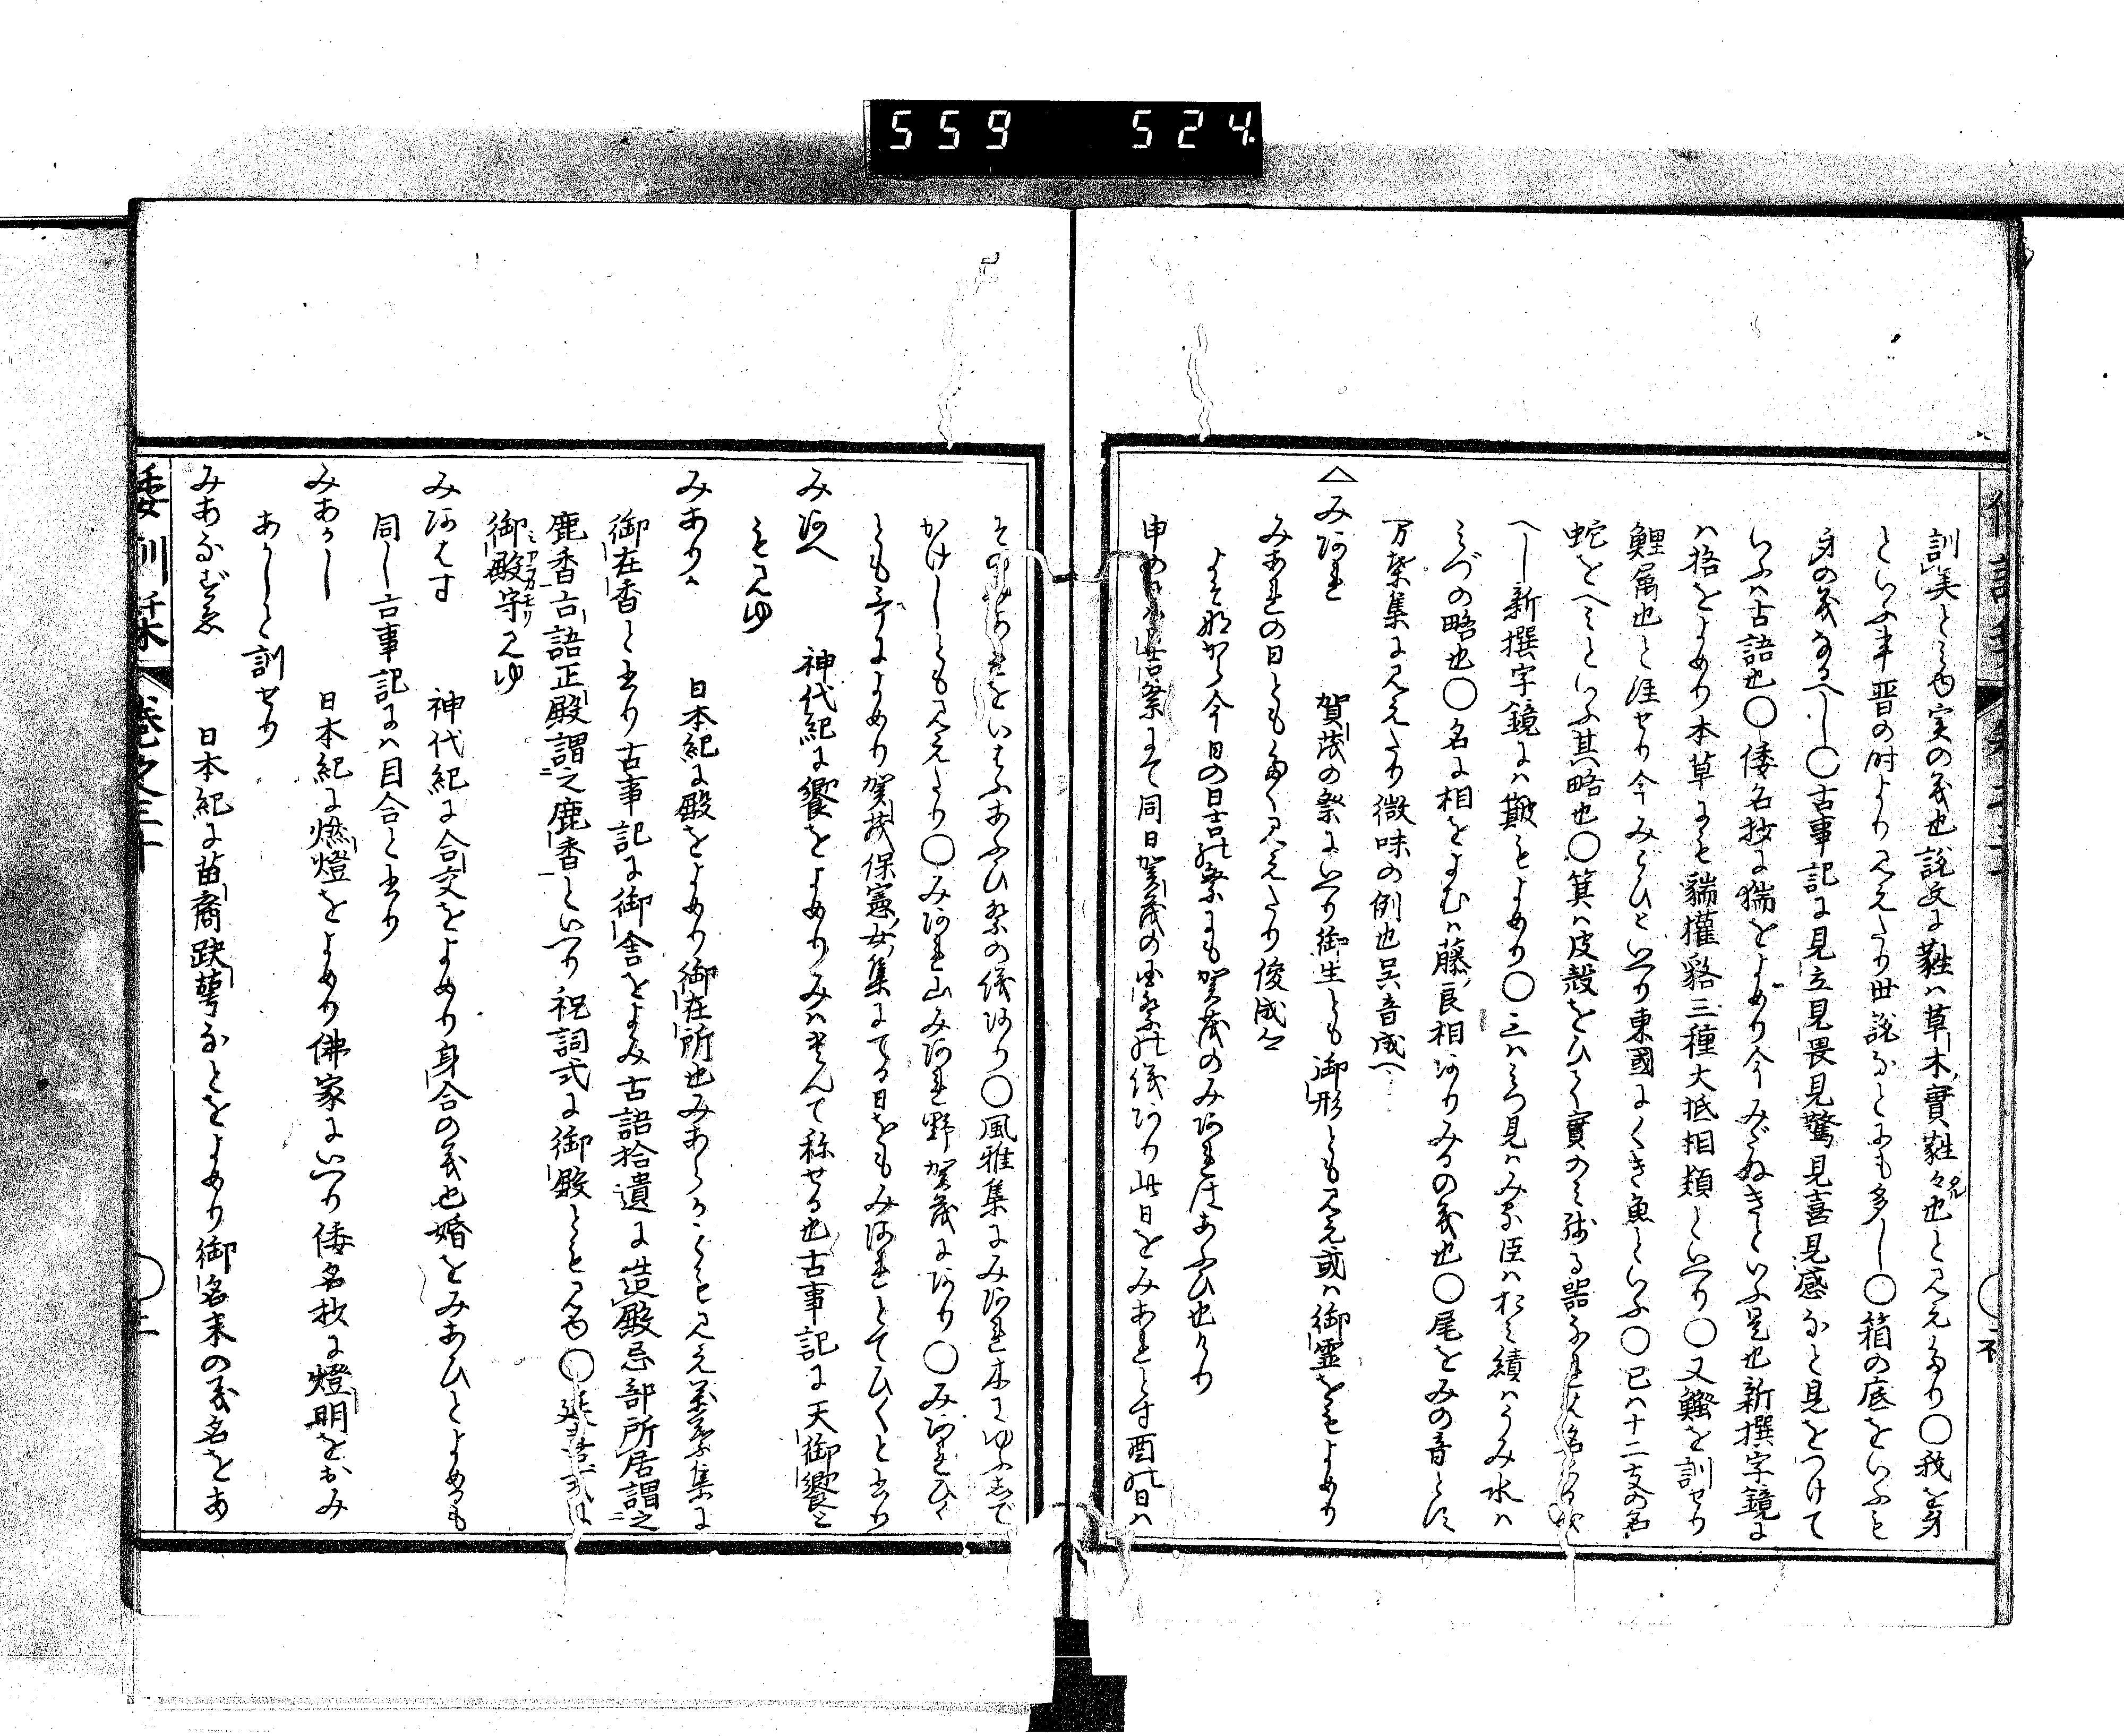 559 524.
訓美とミゆ実の義也説文に蘳ハ草木實蘳々也と見えたり〇我を身
といふ事晋の時より見えたり世説なとにも多し〇箱の底をいふも
身の義なるへし〇古事記に見立見畏見驚見喜見感なと見をつけて
いふハ古語也〇倭名抄に猯をよめり今みだぬきといふ是也新撰字鏡に
ハ狢をよめり本草にも猯獾貉三種大抵相類といへり〇又鱓を訓せり
鯉属也と注せり今みごひといへり東國にくき魚といふ〇巳ハ十二支の名
蛇をヘミといふ其略也〇箕ハ皮殻をひて實のミ残る器なれは名くる歟
へし新撰字鏡にハ簸もよめり〇三ハミつ見ハみる臣ハおミ績ハうみ水ハ
ミづの略也〇名に相をよむハ藤良相ありみるの義也〇尾をみの音とす
万葉集に見えたり微味の例也呉音成へし
△みあれ 賀茂の祭にいへり御生とも御形とも見え或ハ御霊をもよめり
みあれの日とも多く見えたり俊成卿
よそなから今日の日吉の祭にも賀茂のみあれはあふひ也けり
申の日日吉祭にて同日賀茂の国祭の儀あり此日をみあれとす酉の日ハ
かけしとも見えたり〇みあれ山みあれ野賀茂にあり〇みあれひく
とも哥によめり賀茂保憲女集にてる日をもみあれとてひくと書り
みあへ 神代紀に饗をよめりみハ尊んて称せる也古事記に天御饗と
も見ゆ
みあらか 日本紀に殿をよめり御在所也みあらかことも見え萬葉集に
御在香と書り古事記に御舎をよみ古語拾遺に造殿忌部所居謂之
鹿香古語正殿謂之鹿香といへり祝詞式に御殿とも見ゆ〇延喜式に
御殿守見ゆ
みあはす 神代紀に合交をよめり身合の義也婚をみあひとよめるも
同し古事記にハ目合と書り
みあかし 日本紀に燃燈をよめり佛家にいへり倭名抄に燈明をおみ
あかしと訓せり
みあなずゑ 日本紀に苗裔趺萼なとをよめり御名末の義名をあ
倭訓栞 巻之三十 〇二